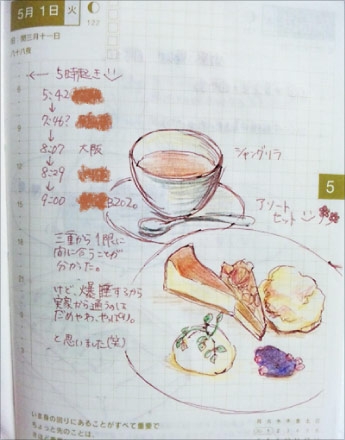 5月1日 火
122
旧 閏三月十一日
八十八夜
← 5時起き
5:42
↓
7:46?
↓
8:07 大阪
↓
8:29
↓
9:00 B2020
シャングリラ
アソート
セット
5
三重から1限に
間に合うことが
分かった。
けど、爆睡するから
実家から通うのは
だめやわ、やっぱり。
と思いました(笑)
いま身の回りにあることがすべて重要で
ちょっと先のことは、